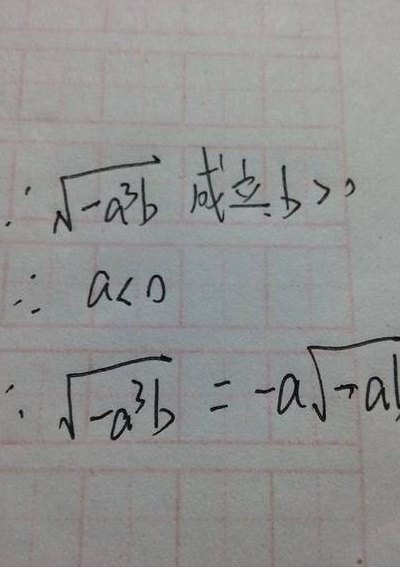 ∵ √(-a³b) 成立. b>0
∴ a<0
∴ √(-a³b) = -a√(-ab